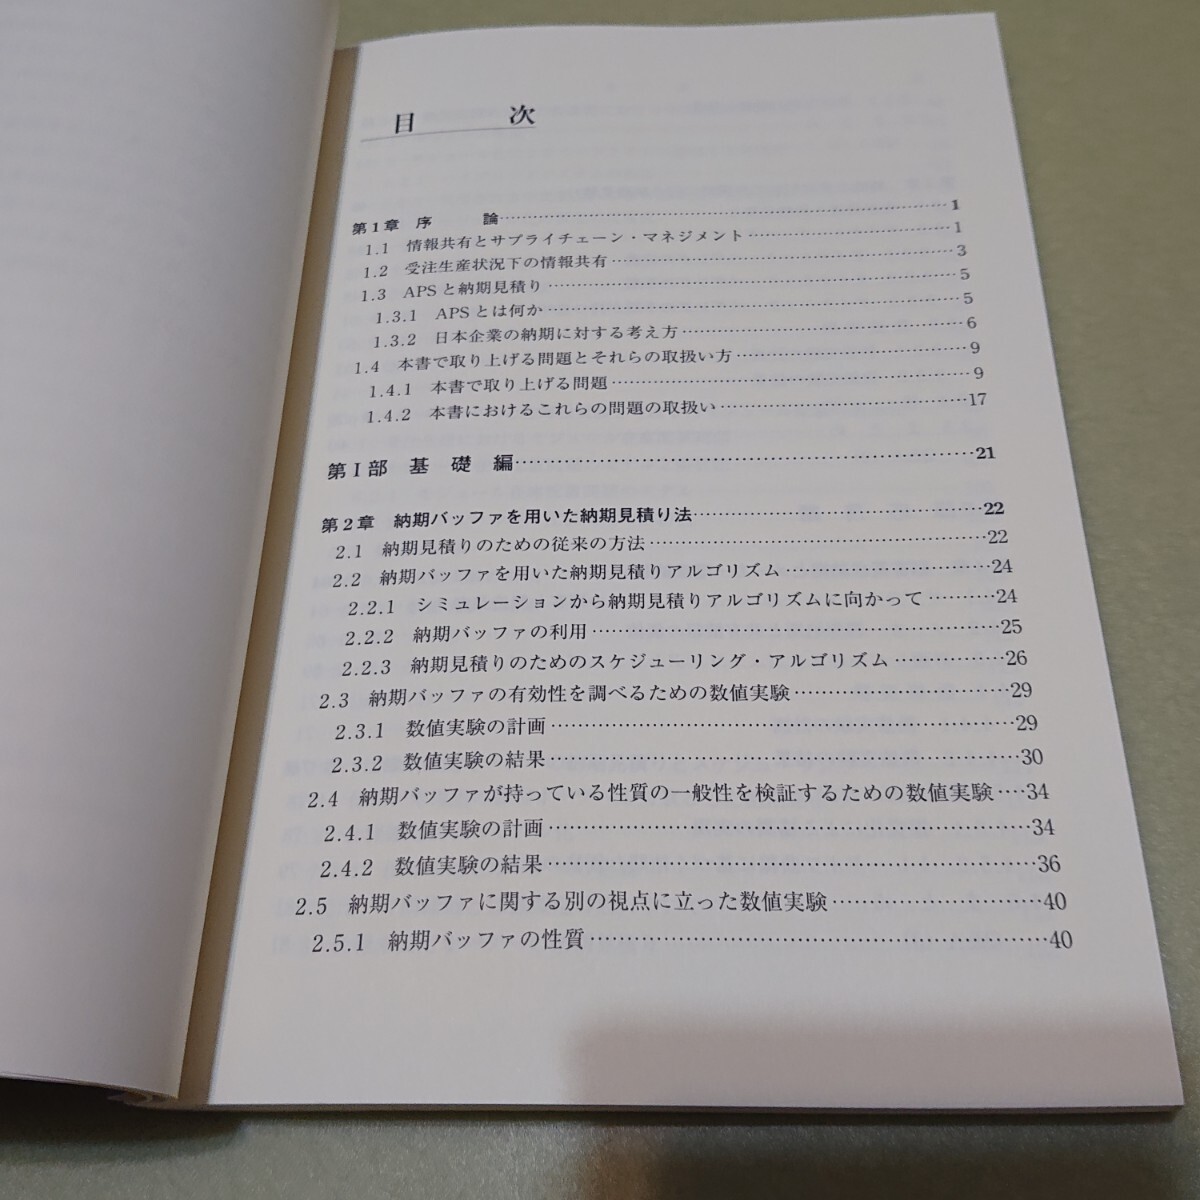 目　次
第1章 序　論……1
1.1 情報共有とサプライチェーン・マネジメント……1
1.2 受注生産状況下の情報共有……3
1.3 APSと納期見積り……5
1.3.1 APSとは何か……5
1.3.2 日本企業の納期に対する考え方……6
1.4 本書で取り上げる問題とそれらの取扱い方……9
1.4.1 本書で取り上げる問題……9
1.4.2 本書におけるこれらの問題の取扱い……17
第I部 基 礎 編……21
第2章 納期バッファを用いた納期見積り法……22
2.1 納期見積りのための従来の方法……22
2.2 納期バッファを用いた納期見積りアルゴリズム……24
2.2.1 シミュレーションから納期見積りアルゴリズムに向かって……24
2.2.2 納期バッファの利用……25
2.2.3 納期見積りのためのスケジューリング・アルゴリズム……26
2.3 納期バッファの有効性を調べるための数値実験……29
2.3.1 数値実験の計画……29
2.3.2 数値実験の結果……30
2.4 納期バッファが持っている性質の一般性を検証するための数値実験……34
2.4.1 数値実験の計画……34
2.4.2 数値実験の結果……36
2.5 納期バッファに関する別の視点に立った数値実験……40
2.5.1 納期バッファの性質……40